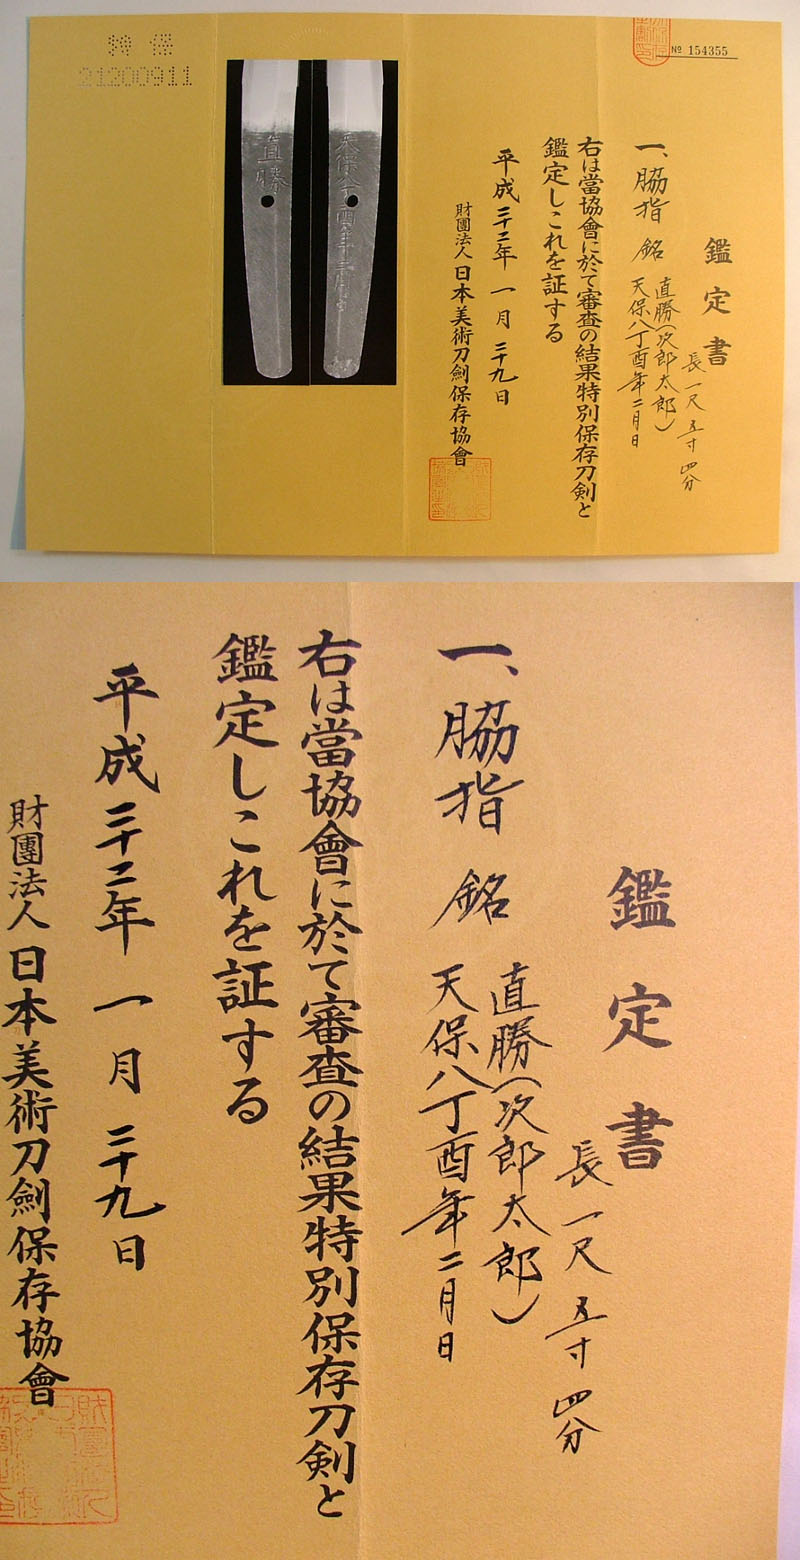 特保
21200911
直勝
No 154355
鑑定書
長一尺五寸四分
一、脇指 銘 直勝(次郎太郎)
天保八丁酉年二月日
右は當協會に於て審査の結果特別保存刀剣と
鑑定しこれを証する
平成二十二年一月二十九日
財團法人日本美術刀劍保存協會
鑑定書
長一尺五寸四分
一、脇指 銘 直勝(次郎太郎)
天保八丁酉年二月日
右は當協會に於て審査の結果特別保存刀剣と
鑑定しこれを証する
平成二十二年一月二十九日
財團法人日本美術刀劍保存協會